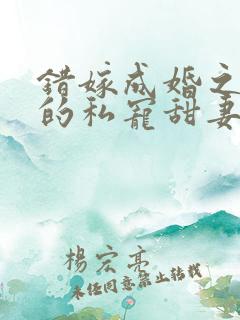 错嫁成婚之
的私宠甜妻
杨宏亮
未经同意禁止转载